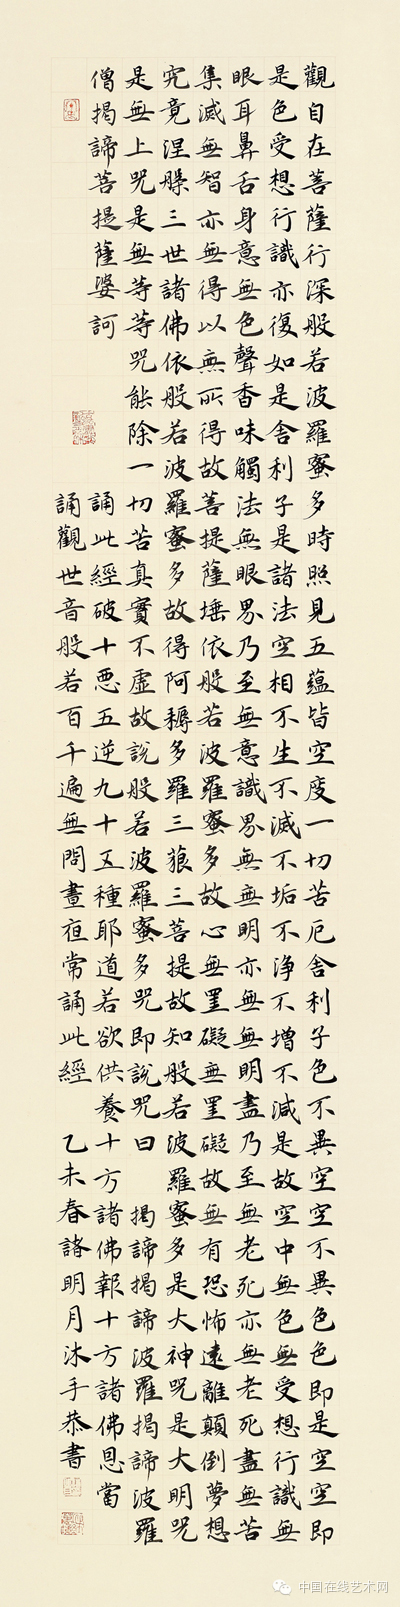 觀自在菩薩行深般若波羅蜜多時照見五蘊皆空度一切苦厄舍利子色不異空空不異色色即是空空即
是色受想行識亦復如是舍利子是諸法空相不生不滅不垢不淨不增不減是故空中無色無受想行識無
眼耳鼻舌身意無色聲香味觸法無眼界乃至無意識界無無明亦無無明盡乃至無老死亦無老死盡無苦
集滅無智亦無得以無所得故菩提薩埵依般若波羅蜜多故心無罣礙無罣礙故無有恐怖遠離顛倒夢想
究竟涅槃三世諸佛依般若波羅蜜多故得阿耨多羅三藐三菩提故知般若波羅蜜多是大神咒是大明咒
是無上咒是無等等咒能除一切苦真實不虛故說般若波羅蜜多咒即說咒曰 揭諦揭諦波羅揭諦波羅
僧揭諦菩提薩婆訶
誦此經破十悪五逆九十五種耶道若欲供養十方諸佛報十方諸佛恩當
誦觀世音般若百千遍無問晝夜常誦此經 乙未春諸明月沐手恭書
中国在线艺术网